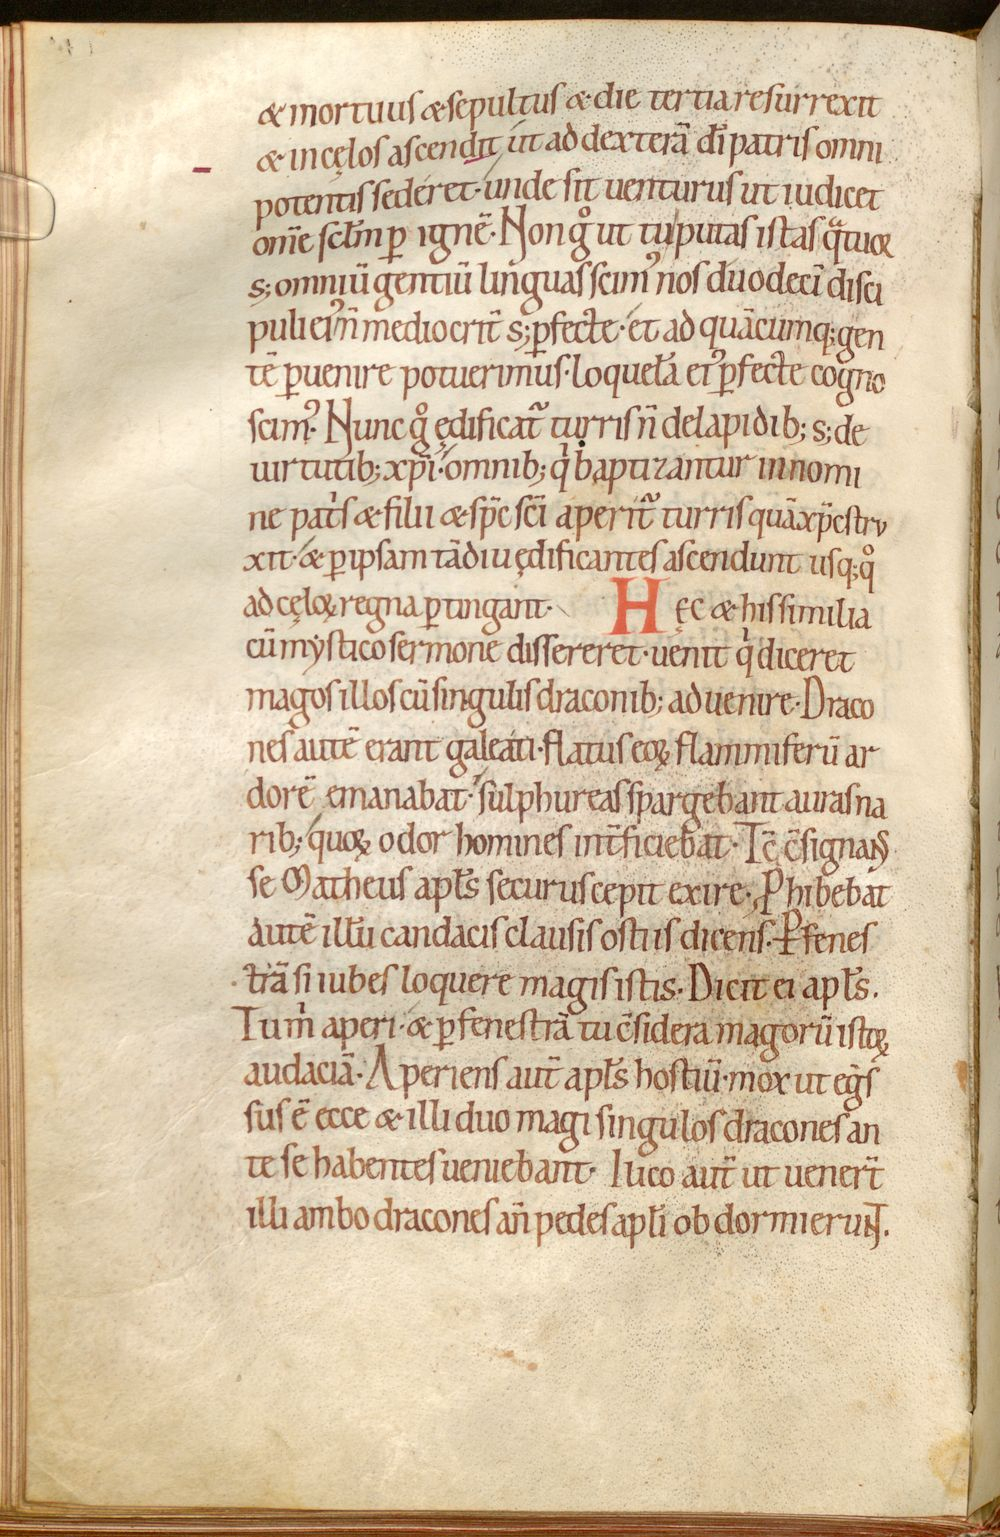 & mortuus & sepultus & die tertia resurrexit
& in cęlos ascendit ut ad dexterā dī patris omni
potentis sederet· unde sit uenturus ut iudicet
om̄e sc̄lm p̄ ignē· Non gͦ ut tu putas istas q̄tuor
s; omniū gentiū linguas scimꝰ nos duodeci̅ disci
puli eiꝰ n̄ mediocrit̄ s; ꝑfecte· et ad quācumq; gen
tē ꝑuenire potuerimus· loquelā eiꝰ ꝑfecte cogno
scimꝰ· Nunc gͦ ędificat̄ turris n̄ de lapidib; s; de
uirtutib; xp̄i· omnib; qͥ baptizantur in nomi
ne patͥs & filii & sp̄c sc̄i aperit̄ turris quā xp̄c stru
xit· & ꝑ ipsam tādiu ędificantes ascendunt usq; qͦ
ad cęloꝝ regna ꝑtingant· Hęc & his similia
cū mystico sermone dissereret· uenit qͥ diceret
magos illos cū singulis draconib; aduenire· Draco
nes autē erant galeati· flatus eoꝝ flammiferū ar
dorē emanabat· sulphureas spargebant auras na
rib; quoꝝ odor homines int̄ficiebat· Tc̄ c̄signans
se Matheus apl̄s securus cepit exire· Phibebat
autē illū candacis clausis ostiis dicens· Ꝑ fenes
trā si iubes loquere magis istis· Dicit ei apl̄s.
Tu m̄ aperi· & ꝑ fenestrā tu c̄sidera magorū istoꝝ
audaciā· Aperiens aut̄ apl̄s hostiū· mox ut eg̃s
sus ē ecce & illi duo magi singulos dracones an
te se habentes ueniebant· Iuco aut̄ ut uener̄t
illi ambo dracones an̄ pedes apl̄i obdormierunt.